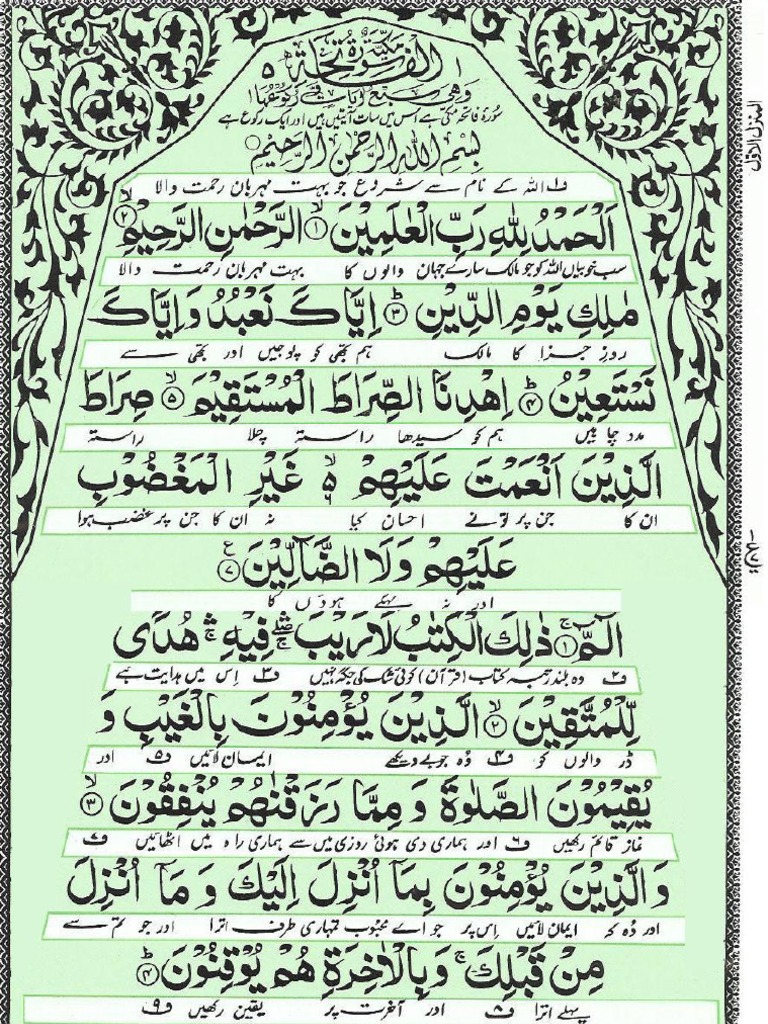 سورة الفاتحة مكية ٥
وهي سبع ايات و ركوعها
سورۂ فاتحہ مکی ہے اس میں سات آیتیں ہیں اور ایک رکوع ہے
بِسْمِ اللّٰهِ الرَّحْمٰنِ الرَّحِيْمِ
ف١ اللہ کے نام سے شروع جو بہت مہربان رحمت والا
اَلْحَمْدُ لِلّٰهِ رَبِّ الْعٰلَمِيْنَ ۙ﴿١﴾ الرَّحْمٰنِ الرَّحِيْمِ ۙ﴿٢﴾
سب خوبیاں اللہ کو جو مالک سارے جہان والوں کا بہت مہربان رحمت والا
مٰلِكِ يَوْمِ الدِّيْنِ ؕ﴿٣﴾ اِيَّاكَ نَعْبُدُ وَاِيَّاكَ
روزِ جزا کا مالک ہم تجھی کو پوجیں اور تجھی سے
نَسْتَعِيْنُ ؕ﴿٤﴾ اِهْدِنَا الصِّرَاطَ الْمُسْتَقِيْمَ ۙ﴿٥﴾ صِرَاطَ
مدد چاہیں ہم کو سیدھا راستہ چلا راستہ
الَّذِيْنَ اَنْعَمْتَ عَلَيْهِمْ ۙ۬ۦ غَيْرِ الْمَغْضُوْبِ
ان کا جن پر تو نے احسان کیا نہ ان کا جن پر غضب ہوا
عَلَيْهِمْ وَلَا الضَّآلِّيْنَ ﴿٧﴾ ع
اور نہ بہکے ہوؤں کا
الٓمّٓ ۚ﴿١﴾ ذٰلِكَ الْكِتٰبُ لَا رَيْبَ ۖۛ فِيْهِ ۚۛ هُدًى
ف٢ وہ بلند رتبہ کتاب (قرآن) کوئی شک کی جگہ نہیں ف٣ اس میں ہدایت ہے
لِّلْمُتَّقِيْنَ ۙ﴿٢﴾ الَّذِيْنَ يُؤْمِنُوْنَ بِالْغَيْبِ وَ
ڈر والوں کو ف٤ وہ جو بے دیکھے ایمان لائیں ف٥ اور
يُقِيْمُوْنَ الصَّلٰوةَ وَ مِمَّا رَزَقْنٰهُمْ يُنْفِقُوْنَ ۙ﴿٣﴾
نماز قائم رکھیں ف٦ اور ہماری دی ہوئی روزی میں سے ہماری راہ میں اٹھائیں ف٧
وَالَّذِيْنَ يُؤْمِنُوْنَ بِمَآ اُنْزِلَ اِلَيْكَ وَ مَآ اُنْزِلَ
اور وہ کہ ایمان لائیں اس پر جو اے محبوب تمہاری طرف اترا اور جو تم سے
مِنْ قَبْلِكَ ۚ وَبِالْاٰخِرَةِ هُمْ يُوْقِنُوْنَ ؕ﴿٤﴾
پہلے اترا ف٨ اور آخرت پر یقین رکھیں ف٩
المنزل الاول